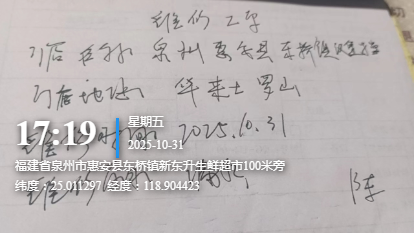 维修工单
门店名称 泉州惠安县东桥
门店地址 华莱士 罗山
2025.10.31
17:19
星期五
2025-10-31
福建省泉州市惠安县东桥镇新东升生鲜超市100米旁
纬度：25.011297 经度：118.904423
维修
陈